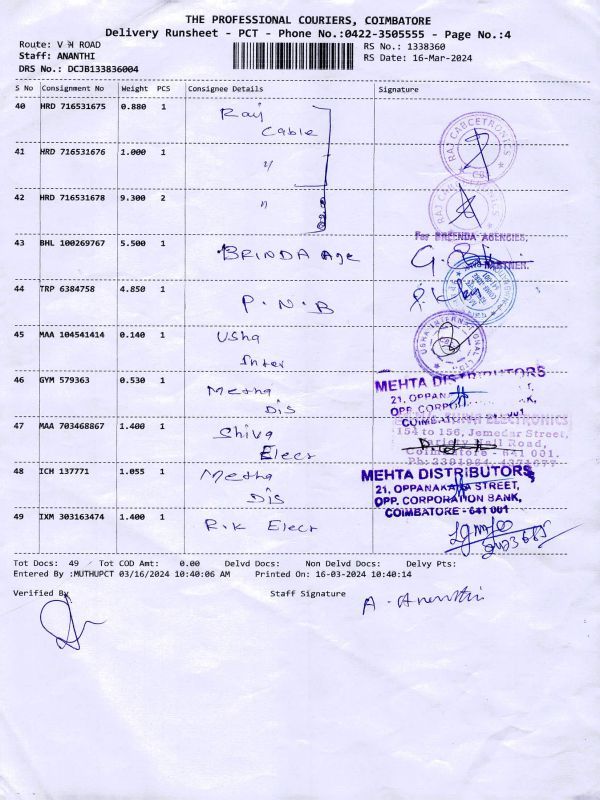 THE PROFESSIONAL COURIERS, COIMBATORE
Delivery Runsheet - PCT - Phone No.:0422-3505555 - Page No.:4
Route: V H ROAD
RS No.: 1338360
Staff: ANANTHI
RS Date: 16-Mar-2024
DRS No.: DCJB133836004
S No Consignment No Weight PCS Consignee Details Signature
40 HRD 716531675 0.880 1 Raj
Cable
RAJ CABCETRONICS
CBE
41 HRD 716531676 1.000 1 "
42 HRD 716531678 9.300 2 "
RAJ CABCETRONICS
For BREENDA AGENCIES,
43 BHL 100269767 5.500 1 BRINDA Age
PARTNER.
44 TRP 6384758 4.850 1 P.N.B
45 MAA 104541414 0.140 1 Usha
Inter
USHA INTERNATIONAL LTD.
46 GYM 579363 0.530 1 Metha
Dis
MEHTA DISTRIBUTORS
21, OPPAN
OPP. CORPO
COIMBATORE - 641 001
47 MAA 703468867 1.400 1 Shiva
Elecr
ELECTRONICS
154 to 156, Jemedar Street,
Road,
Coimbatore - 641 001.
48 ICH 137771 1.055 1 Metha
Dis
MEHTA DISTRIBUTORS
21, OPPANAKARA STREET,
OPP. CORPORATION BANK,
COIMBATORE - 641 001
49 IXM 303163474 1.400 1 R.K Elecr
Tot Docs: 49 / Tot COD Amt: 0.00 Delvd Docs: Non Delvd Docs: Delvy Pts:
Entered By :MUTHUPCT 03/16/2024 10:40:06 AM Printed On: 16-03-2024 10:40:14
Verified By Staff Signature A. Ananthi